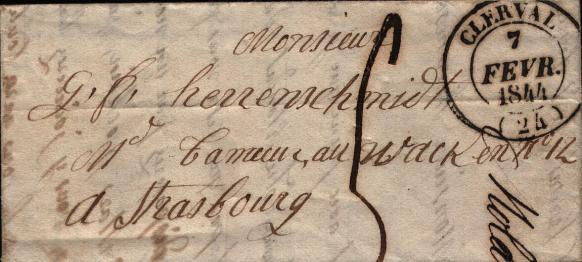 Monsieur
G. f. herrenschmidt
Md Tanneur, au Wacken No 12
a Strasbourg
CLERVAL
7
FEVR.
1844
(24)